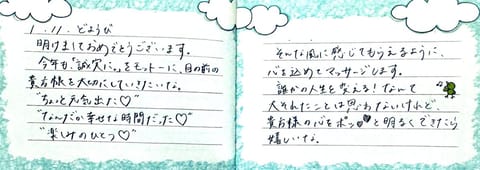 1.11. どようび
明けましておめでとうございます。
今年も「誠実に。」をモットーに、目の前の
貴方様を大切にしていきたいな。
"ちょっと元気出た♡"
"なんだか幸せな時間だった♡"
"楽しみのひとつ♡"
そんな風に感じてもらえるように、
心を込めてマッサージします。
誰かの人生を変える!なんて
大それたことは思わないけれど、
貴方様の心をポッ♥と明るくできたら
嬉しいな。